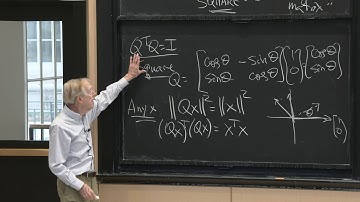 SQUARE matrix
QᵀQ = I
square Q = [cosθ −sinθ; sinθ cosθ] [1; 0] = [cosθ; sinθ]
Any x ||Qx||² = ||x||²
(Qx)ᵀ(Qx) = xᵀx
θ
[1; 0]